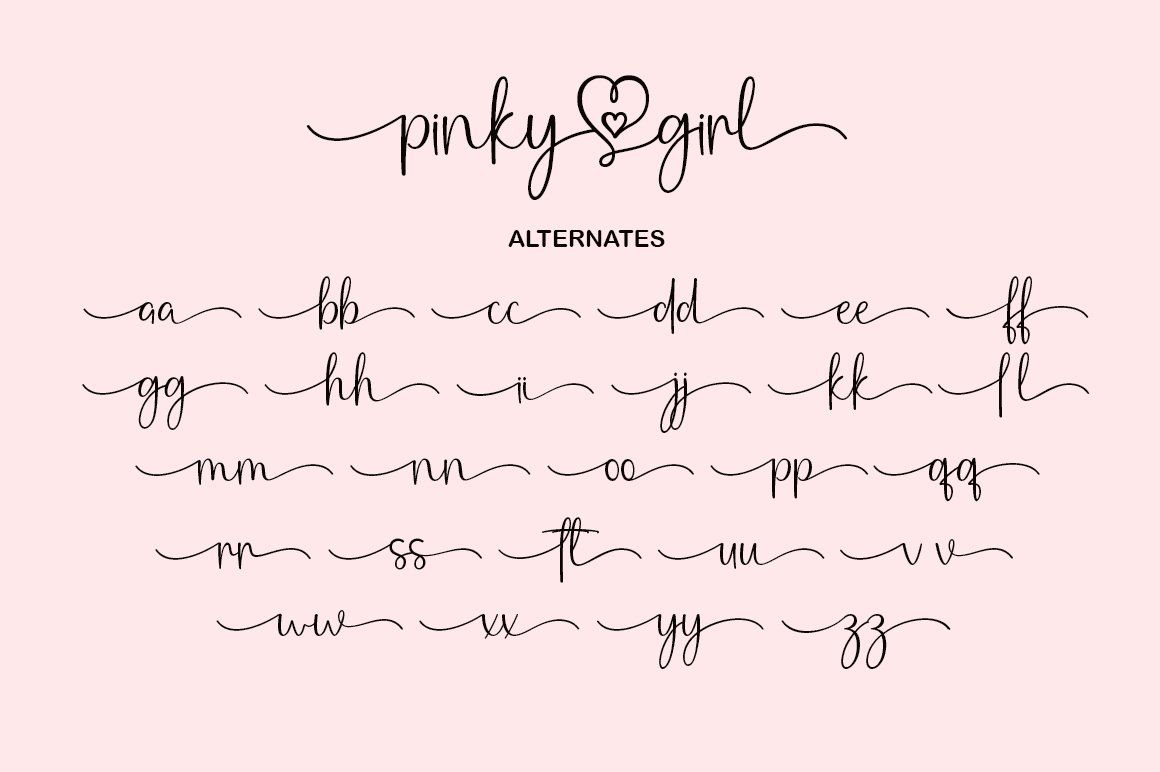 pinky girl
ALTERNATES
aa bb cc dd ee ff
gg hh ii jj kk ll
mm nn oo pp qq
rr ss tt uu vv
ww xx yy zz